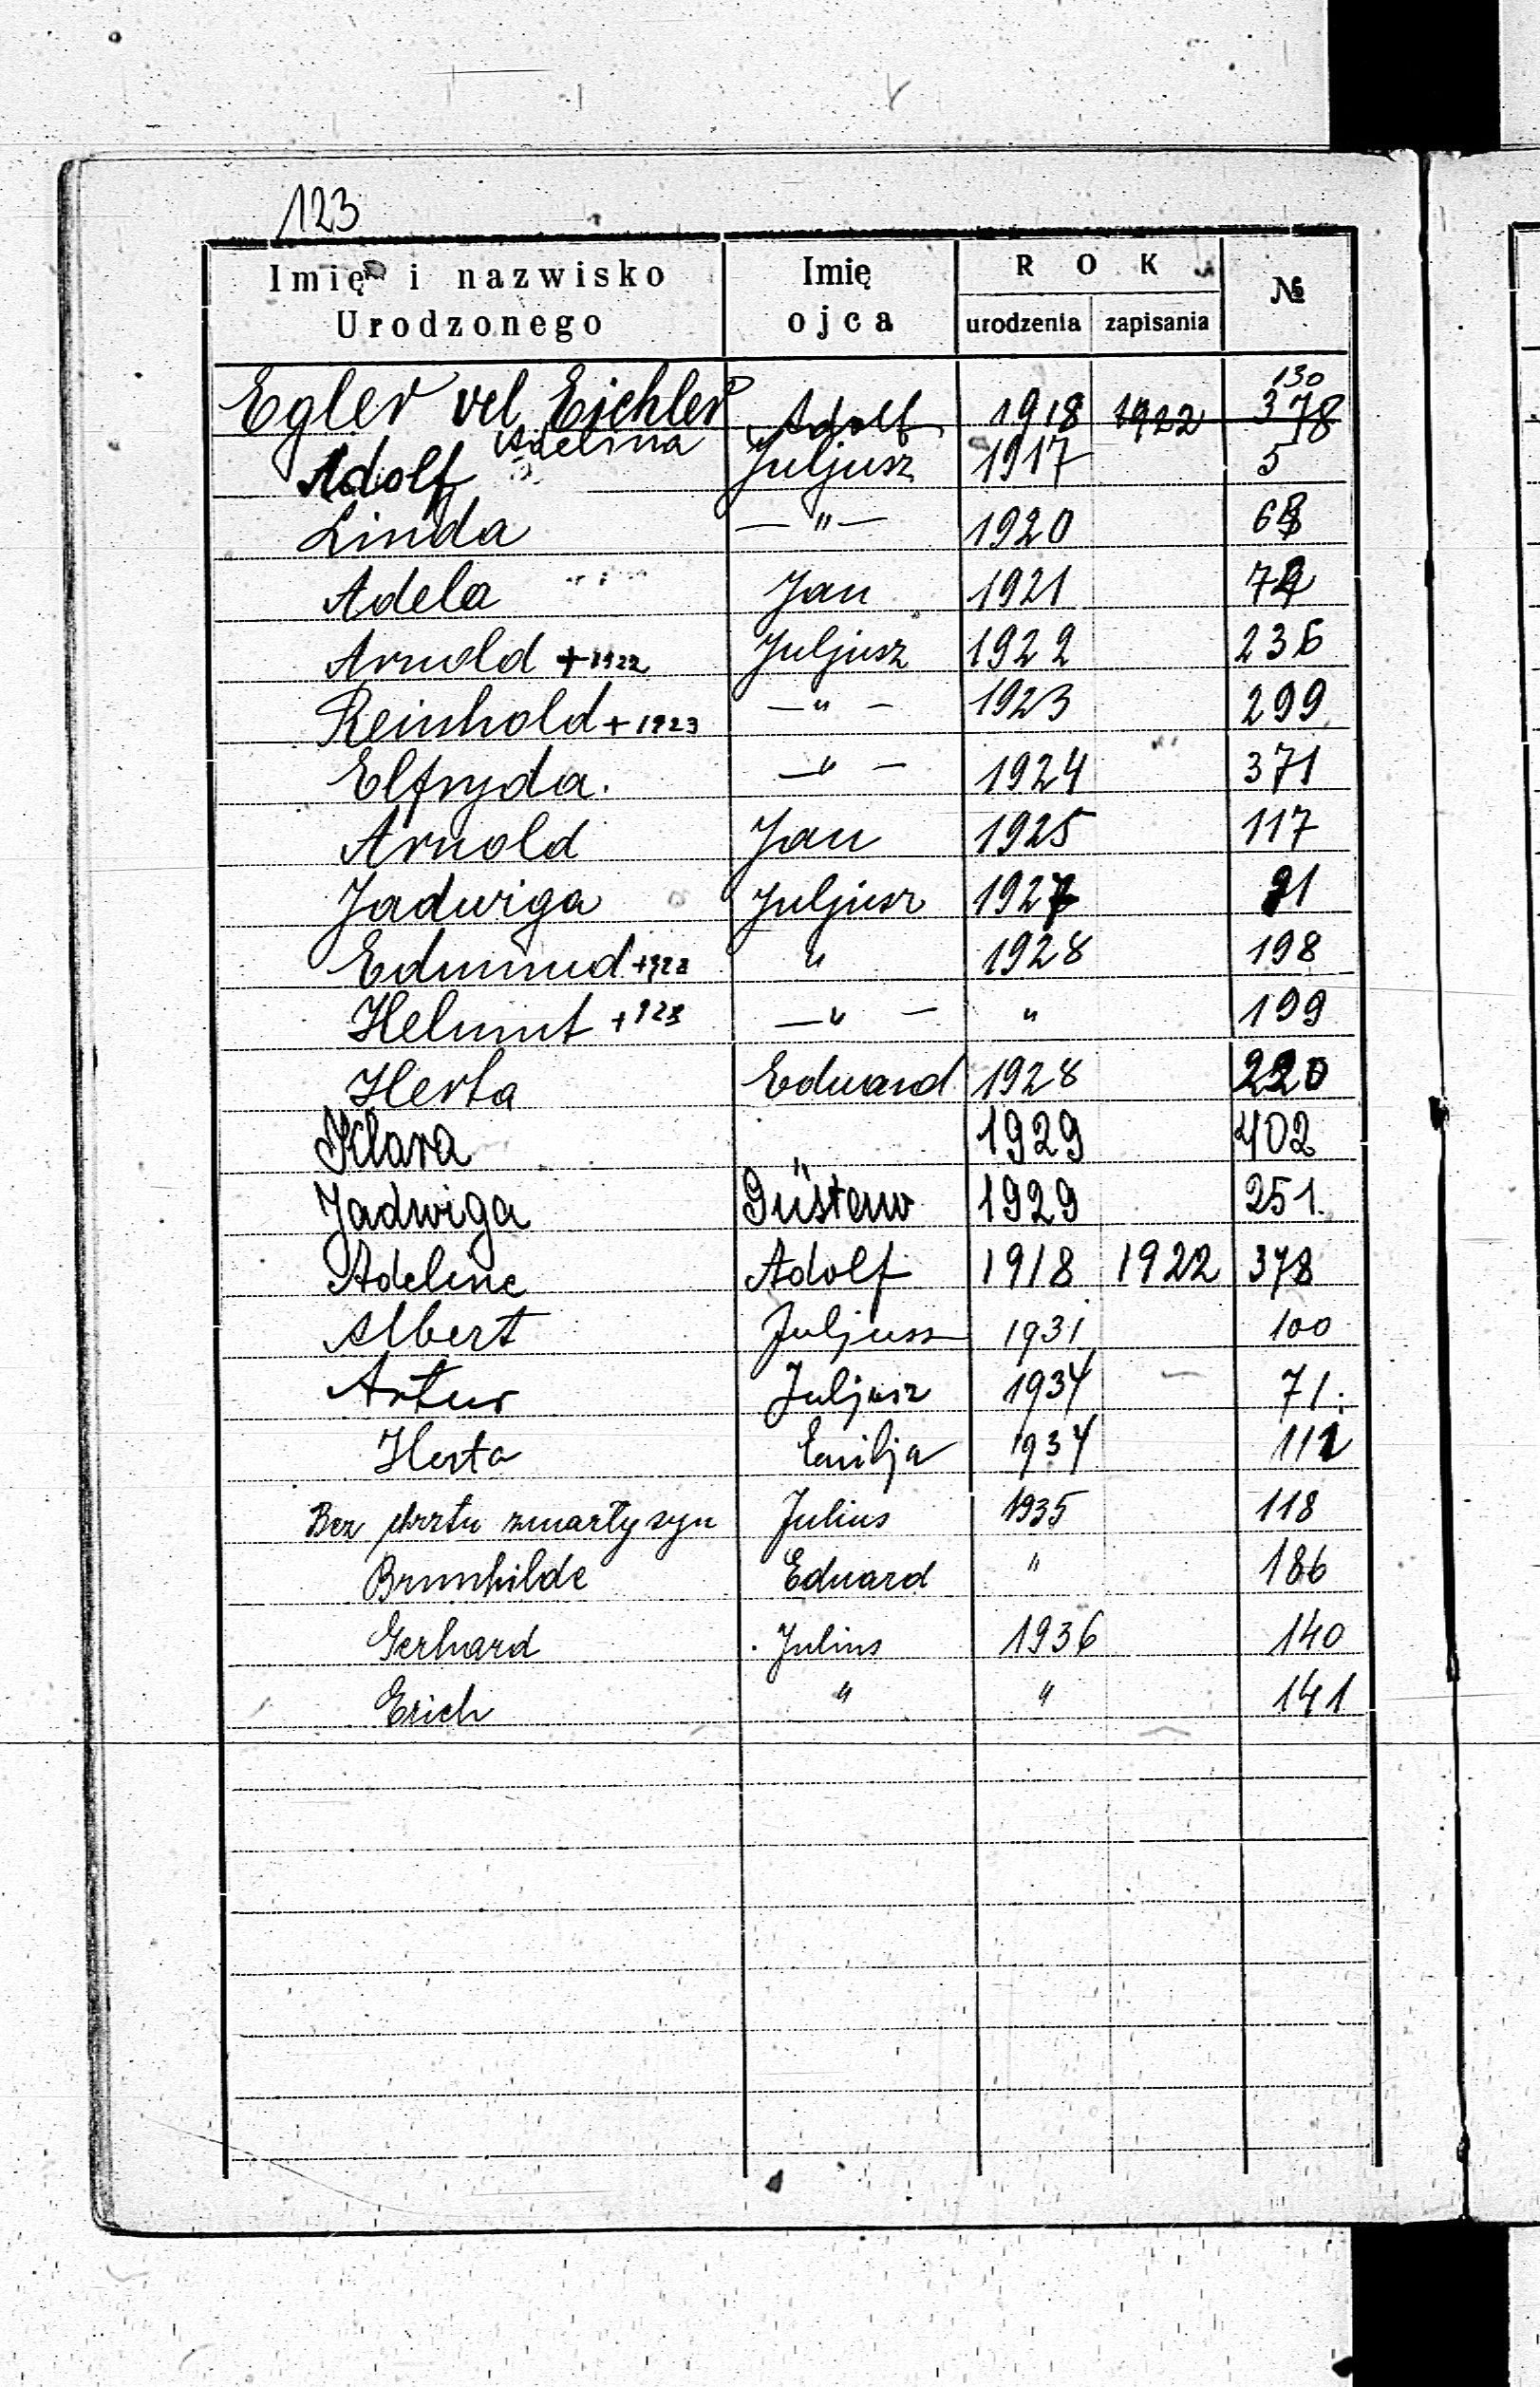 123
Imię i nazwisko Urodzonego | Imię ojca | ROK urodzenia | zapisania | №
130
Egler vel Eichler Adelina Adolf 1918 1922 378
Adolf Juljusz 1917 5
Linda — " — 1920 68
Adela Jan 1921
Arnold + 1922 Juljusz 1922 236
Reinhold + 1923 — " — 1923 299
Elfryda. — " — 1924 371
Arnold Jan 1925 117
Jadwiga Juljusz 1927 91
Edmund + 928 " 1928 198
Helmut + 928 — " — " 199
Herta Eduard 1928 220
Klara 1929 402
Jadwiga Güstaw 1929 251.
Adeline Adolf 1918 1922 378
Albert Juljusz 1931 100
Artur Juljusz 1934 71.
Herta Emilja 1934 112
Bez chrztu zmarły syn Julius 1935 118
Brunhilde Eduard " 186
Gerhard Julius 1936 140
Erich " " 141